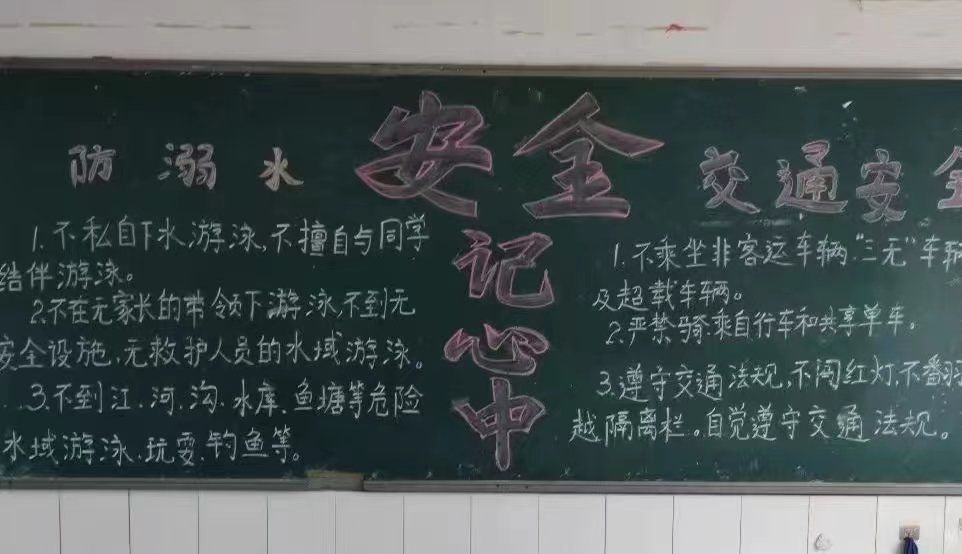 安全
记
心
中
防溺水
1.不私自下水游泳,不擅自与同学
结伴游泳。
2.不在无家长的带领下游泳,不到无
安全设施、无救护人员的水域游泳。
3.不到江、河、沟、水库、鱼塘等危险
水域游泳、玩耍、钓鱼等。
交通安全
1.不乘坐非客运车辆、“三无”车辆
及超载车辆。
2.严禁骑乘自行车和共享单车。
3.遵守交通法规,不闯红灯,不翻
越隔离栏。自觉遵守交通法规。